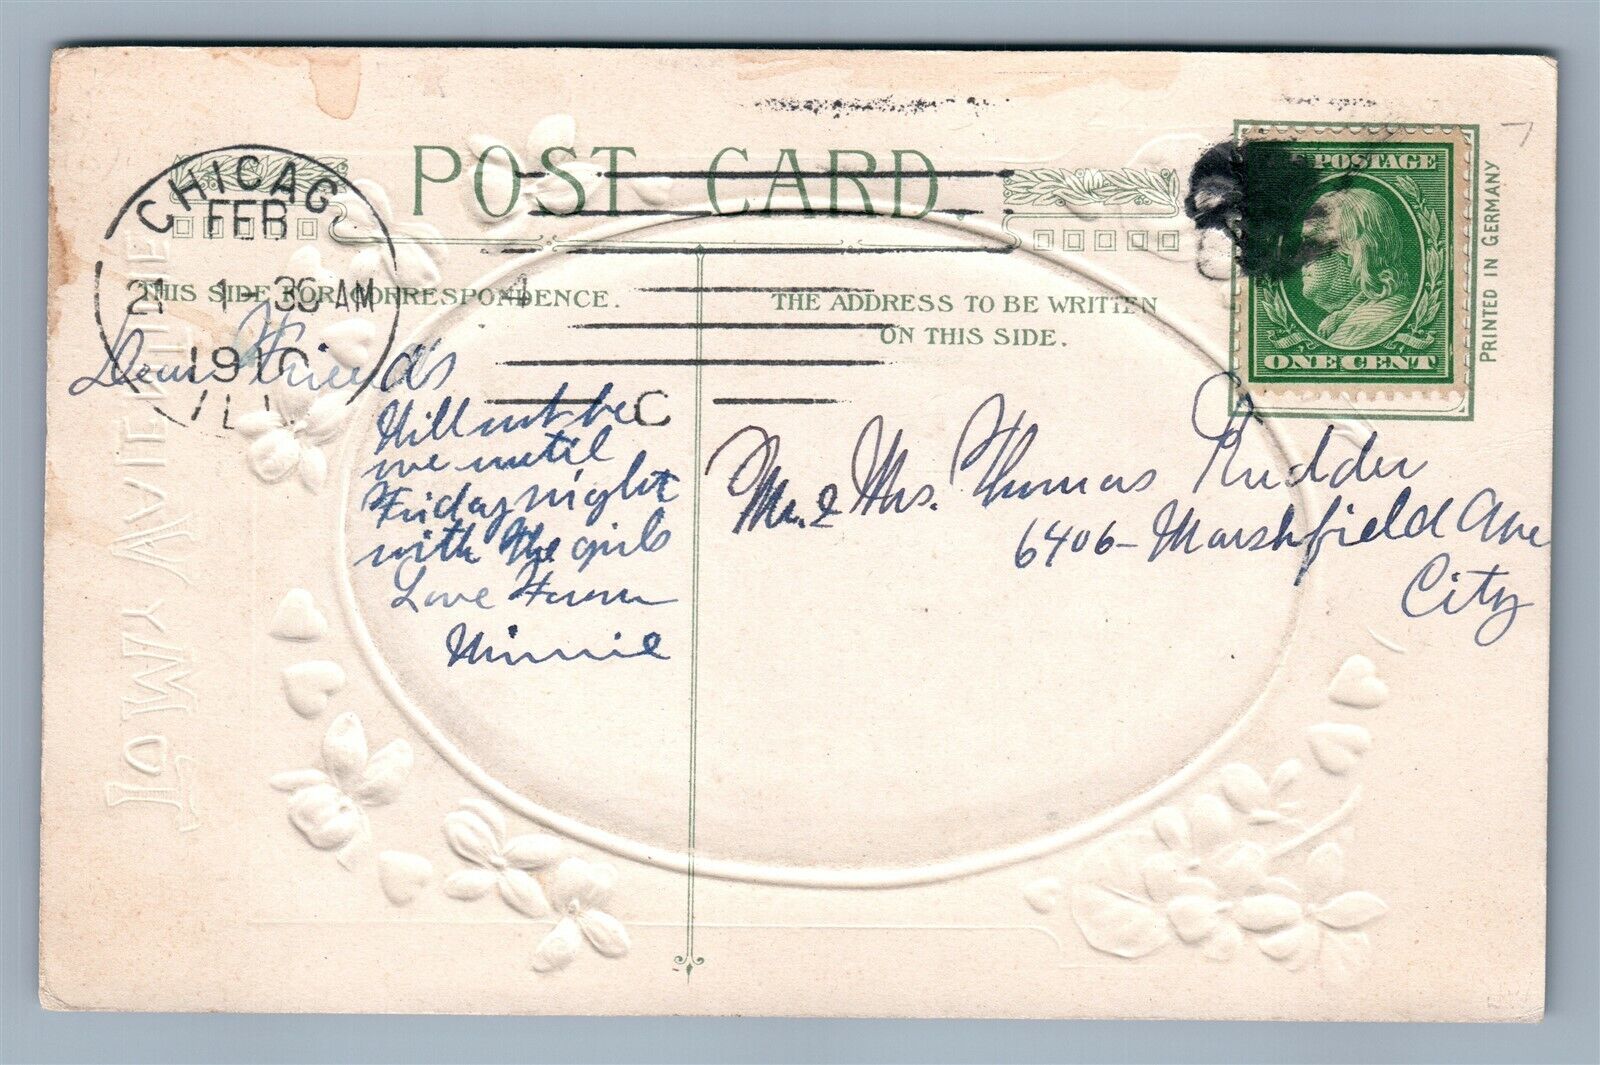 POST CARD.
CHICAG
FEB
21 1-30 AM
1910
ILL
4
C
THIS SIDE FOR CORRESPONDENCE.
THE ADDRESS TO BE WRITTEN
ON THIS SIDE.
POSTAGE
ONE CENT
PRINTED IN GERMANY
Dear Friends
Will not be
over until
Friday night
with the girls
Love From
Minnie
Mr. & Mrs. Thomas Rudder
6406- Marshfield Ave
City
TO MY VALENTINE